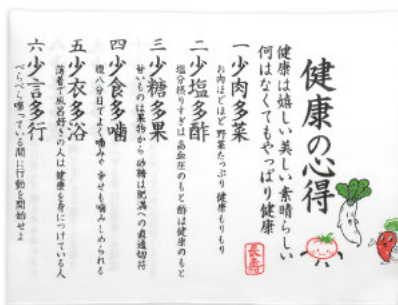 健康の心得
健康は嬉しい美しい素晴らしい
何はなくてもやっぱり健康
一 少肉多菜
お肉ほどほど 野菜たっぷり 健康もりもり
二 少塩多酢
塩分摂りすぎは高血圧のもと 酢は健康のもと
三 少糖多果
甘いものは果物から 砂糖は肥満への直通切符
四 少食多噛
腹八分目でよく噛みゃ 幸せも噛みしめられる
五 少衣多浴
薄着で風呂好きの人は 健康を身につけている人
六 少言多行
べらべら喋っている間に行動を開始せよ
長寿